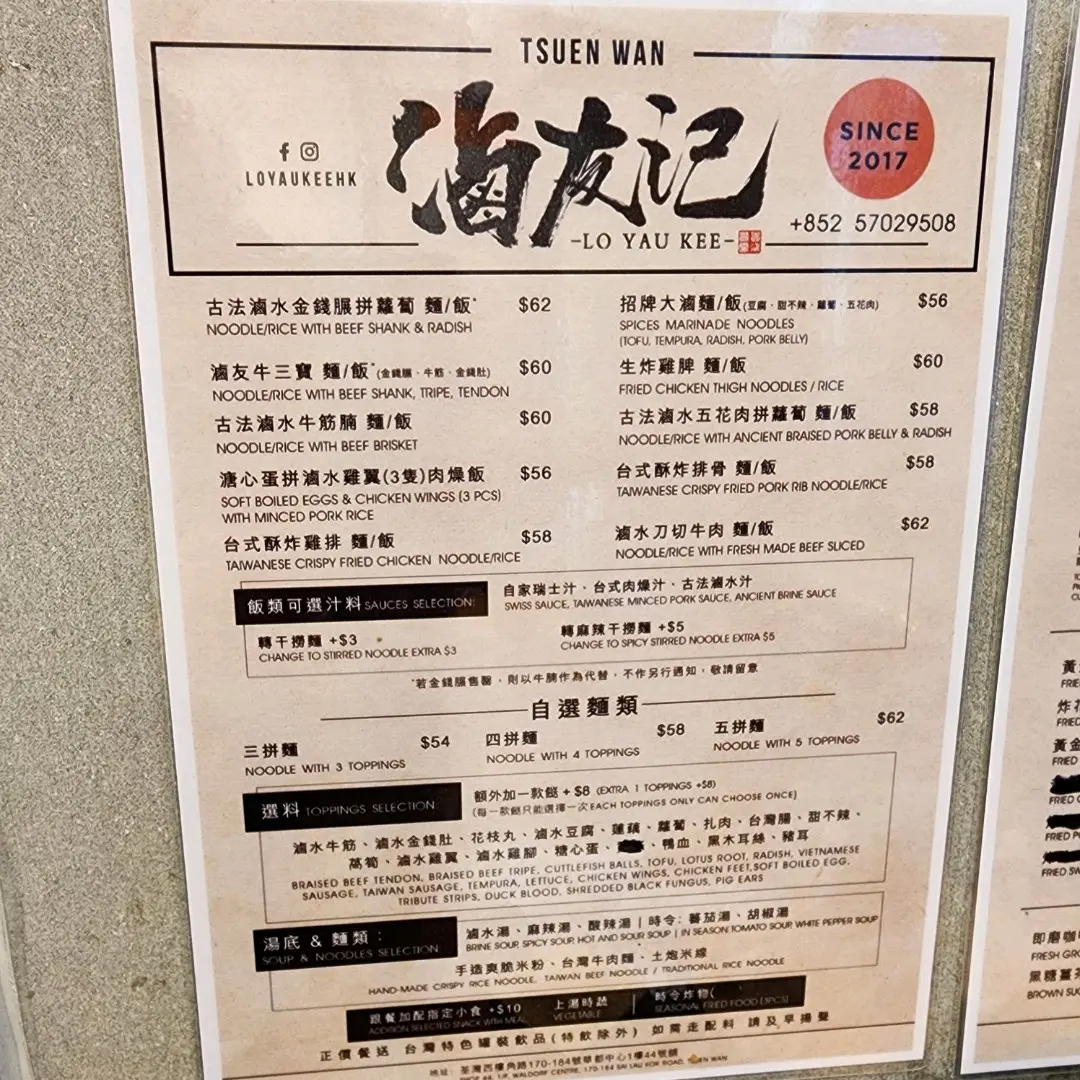 TSUEN WAN
LOYAUKEEHK
滷友记
-LO YAU KEE-
SINCE
2017
+852 57029508
古法滷水金錢𦟌拼蘿蔔 麵/飯* $62
NOODLE/RICE WITH BEEF SHANK & RADISH
滷友牛三寶 麵/飯*(金錢𦟌、牛筋、金錢肚) $60
NOODLE/RICE WITH BEEF SHANK, TRIPE, TENDON
古法滷水牛筋腩 麵/飯 $60
NOODLE/RICE WITH BEEF BRISKET
溏心蛋拼滷水雞翼(3隻)肉燥飯 $56
SOFT BOILED EGGS & CHICKEN WINGS (3 PCS)
WITH MINCED PORK RICE
台式酥炸雞排 麵/飯 $58
TAIWANESE CRISPY FRIED CHICKEN NOODLE/RICE
招牌大滷麵/飯(豆腐、甜不辣、蘿蔔、五花肉) $56
SPICES MARINADE NOODLES
(TOFU, TEMPURA, RADISH, PORK BELLY)
生炸雞脾 麵/飯 $60
FRIED CHICKEN THIGH NOODLES / RICE
古法滷水五花肉拼蘿蔔 麵/飯 $58
NOODLE/RICE WITH ANCIENT BRAISED PORK BELLY & RADISH
台式酥炸排骨 麵/飯 $58
TAIWANESE CRISPY FRIED PORK RIB NOODLE/RICE
滷水刀切牛肉 麵/飯 $62
NOODLE/RICE WITH FRESH MADE BEEF SLICED
飯類可選汁料 SAUCES SELECTION:
自家瑞士汁、台式肉燥汁、古法滷水汁
SWISS SAUCE, TAIWANESE MINCED PORK SAUCE, ANCIENT BRINE SAUCE
轉干撈麵 +$3
CHANGE TO STIRRED NOODLE EXTRA $3
轉麻辣干撈麵 +$5
CHANGE TO SPICY STIRRED NOODLE EXTRA $5
*若金錢𦟌售罄，則以牛腩作為代替，不作另行通知，敬請留意
自選麵類
三拼麵 $54
NOODLE WITH 3 TOPPINGS
四拼麵 $58
NOODLE WITH 4 TOPPINGS
五拼麵 $62
NOODLE WITH 5 TOPPINGS
選料 TOPPINGS SELECTION:
額外加一款餸 + $8 (EXTRA 1 TOPPINGS +$8)
(每一款餸只能選擇一次 EACH TOPPINGS ONLY CAN CHOOSE ONCE)
滷水牛筋、滷水金錢肚、花枝丸、滷水豆腐、蓮藕、蘿蔔、扎肉、台灣腸、甜不辣、
萵筍、滷水雞翼、滷水雞腳、糖心蛋、、鴨血、黑木耳絲、豬耳
BRAISED BEEF TENDON, BRAISED BEEF TRIPE, CUTTLEFISH BALLS, TOFU, LOTUS ROOT, RADISH, VIETNAMESE
SAUSAGE, TAIWAN SAUSAGE, TEMPURA, LETTUCE, CHICKEN WINGS, CHICKEN FEET,SOFT BOILED EGG,
TRIBUTE STRIPS, DUCK BLOOD, SHREDDED BLACK FUNGUS, PIG EARS
湯底 & 麵類：
SOUP & NOODLES SELECTION
滷水湯、麻辣湯、酸辣湯 | 時令: 蕃茄湯、胡椒湯
BRINE SOUP, SPICY SOUP, HOT AND SOUR SOUP | IN SEASON:TOMATO SOUP, WHITE PEPPER SOUP
手造爽脆米粉、台灣牛肉麵、土炮米線
HAND-MADE CRISPY RICE NOODLE, TAIWAN BEEF NOODLE / TRADITIONAL RICE NOODLE
跟餐加配指定小食 +$10
ADDITION SELECTED SNACK WITH MEAL
上湯時蔬
VEGETABLE
時令炸物(
SEASONAL FRIED FOOD (3PCS)
正價餐送 台灣特色罐裝飲品(特飲除外) 如需走配料 請及早揚聲
地址: 荃灣西樓角路170-184號華都中心1樓44號舖
SHOP 44, 1/F, WALDORF CENTRE, 170-184 SAI LAU KOK ROAD,
黃
FRIE
炸花
FRIED
黃金
FRIED
FRIED
FRIED
FRIED SW
即磨咖
FRESH GR
黑糖薑
BROWN SU